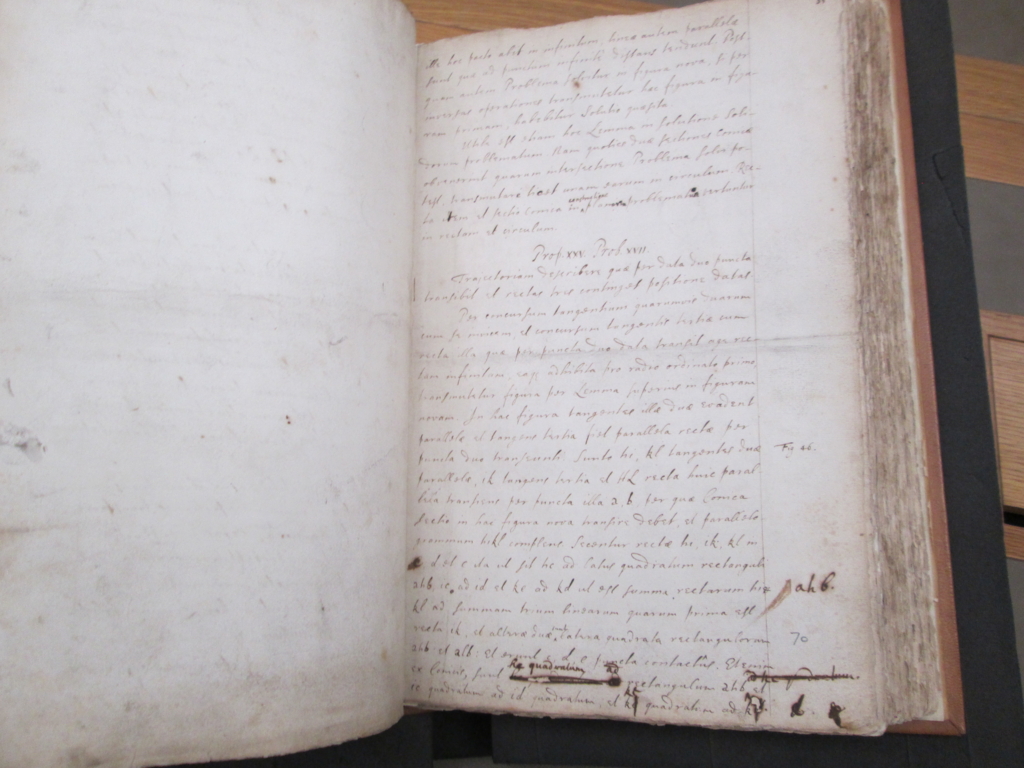 hoc pacto abit in infinitum, lineæ autem parallelæ
sunt quæ ad punctum infinite distans tendunt. Post-
quam autem Problema solvitur in figura nova, si per
inversas operationes transmutetur hæc figura in figu-
ram primam, habebitur Solutio quæsita.
Utile est etiam hoc Lemma in solutione Soli-
dorum problematum. Nam quoties duæ sectiones Conicæ
obvenerint quarum intersectione Problema solvi po-
test, transmutare licet unam earum in circulum. Rec-
ta item et sectio Conica in constructione planorum problematum vertuntur
in rectam et circulum.
Prop. xxv. Prob. xvii.
Trajectoriam describere quæ per data duo puncta
transibit et rectas tres continget positione datas.
Per concursum tangentium quarumvis duarum
cum se invicem, et concursum tangentis tertiæ cum
recta illa quæ per puncta duo data transit age rec-
tam infinitam, eaq adhibita pro radio ordinato primo
transmutetur figura per Lemma superius in figuram
novam. In hac figura tangentes illæ duæ evadent
parallelæ et tangens tertia fiet parallela rectæ per
puncta duo transeunti. Sunto hi, kl tangentes duæ
parallelæ, ik tangens tertia et hl recta huic paral-
lela transiens per puncta illa a, b per quæ Conica
sectio in hac figura nova transire debet, et parallelo-
grammum hikl complens. Secentur rectæ hi, ik, kl in
Fig 46.
c, d et e ita ut sit hc ad latus quadratum rectanguli
ahb, ic ad id et ke ad kd ut est summa rectarum hi et
ahb.
kl ad summam trium linearum quarum prima est
recta ik, et alteræ duæ sunt latera quadrata rectangulorum
70
ahb et alb: Et erunt c, d, e puncta contactus. Etenim
ex Conicis, sunt hc quadratum ad rectangulum ahb et
ic quadratum ad id quadratum, et ke quadratum ad kd